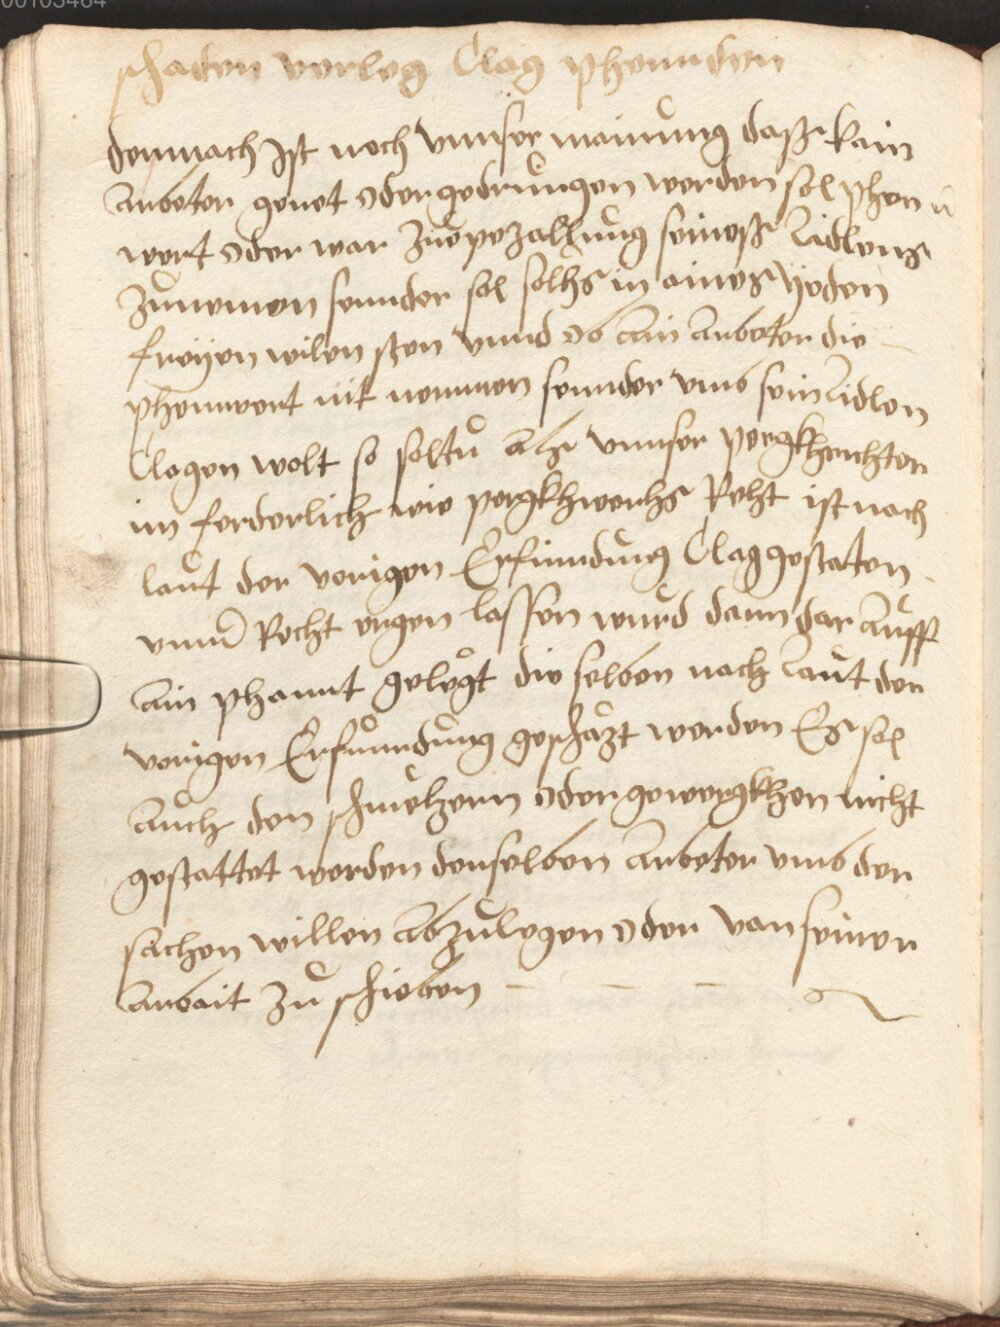 00105464
schaden verleg Clag phenndten
demnach Ist noch vnnser mainung daß kain
Arbeter genet oder gedrungen werden sol phen
wert oder war Zue pezallung seineß Lidlons
Zunemen sunnder sol solhs in aines yeden
freyen wilen sten vnnd ob ain Arbeter die
phennwert nit nemmen sunnder vmb sein Lidlon
Clagen wolt so soltu als vnnser pergkhrichter
im forderlich wie pergkhwerchs Reht ist nach
laut der vorigen Erfinndung Clag gestaten
vnnd Recht ergen lassen wurd dann dar Auff
ain phannt gelegt die selben nach Laut der
vorigen Erfunndung geschäzt werden Es sol
Auch den schmelzern oder gewergkhen nicht
gestattet werden denselben Arbeter vmb der
sachen willen Abzulegen oder von seiner
Arbait Zu schieben